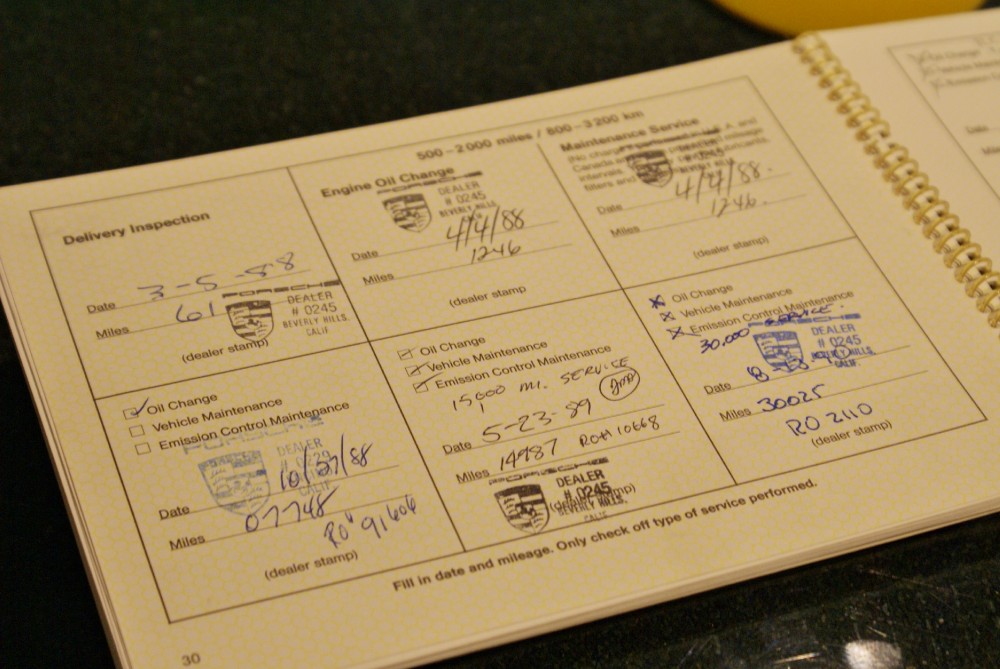 500–2000 miles / 800–3200 km
Delivery Inspection
Date 3-5-88
Miles 61
DEALER
# 0245
BEVERLY HILLS,
CALIF
(dealer stamp)
Engine Oil Change
DEALER
# 0245
BEVERLY HILLS
Date 4/4/88
Miles 1246
(dealer stamp
Maintenance Service
(No charge
Canada
intervals
filters and
Date 4/4/88.
Miles 1246.
(dealer stamp)
Oil Change
Vehicle Maintenance
Emission Control Maintenance
PORSCHE
DEALER
Date 10/27/88
Miles 07748
RO# 91606
(dealer stamp)
Oil Change
Vehicle Maintenance
Emission Control Maintenance
15,000 mi. SERVICE
Date 5-23-89
Miles 14987 RO# 10668
PORSCHE
DEALER
# 0245
BEVERLY HILLS,
CALIF
Oil Change
Vehicle Maintenance
Emission Control Maintenance
30,000 SERVICE.
DEALER
# 0245
BEVERLY HILLS,
CALIF.
Date
Miles 30025
RO 2110
(dealer stamp)
Fill in date and mileage. Only check off type of service performed.
30